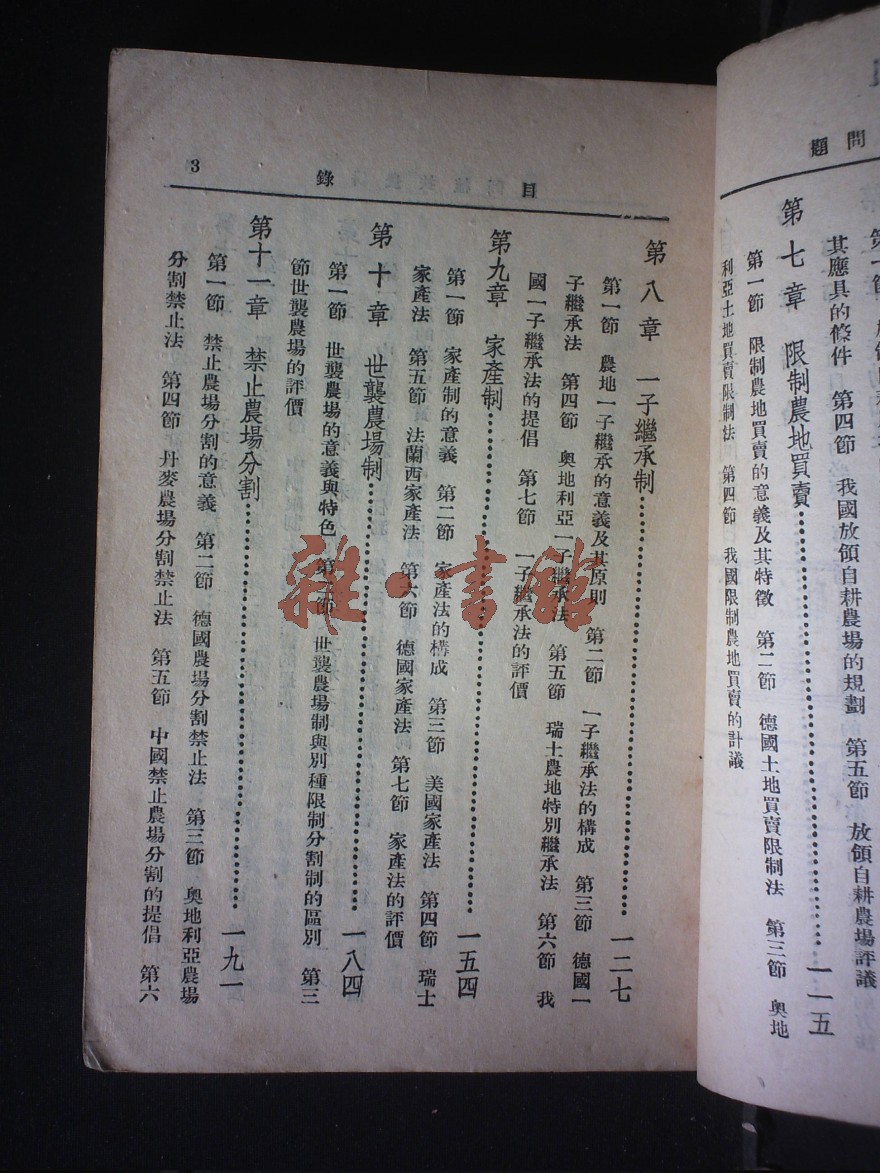 問題
其應具的條件 第四節 我國放領自耕農場的規劃 第五節 放領自耕農場評議
第七章 限制農地買賣 一一五
第一節 限制農地買賣的意義及其特徵 第二節 德國土地買賣限制法 第三節 奧地
利亞土地買賣限制法 第四節 我國限制農地買賣的計議
目錄 3
第八章 一子繼承制 一二七
第一節 農地一子繼承的意義及其原則 第二節 一子繼承法的構成 第三節 德國一
子繼承法 第四節 奧地利亞一子繼承法 第五節 瑞士農地特別繼承法 第六節 我
國一子繼承法的提倡 第七節 一子繼承法的評價
第九章 家產制 一五四
第一節 家產制的意義 第二節 家產法的構成 第三節 美國家產法 第四節 瑞士
家產法 第五節 法蘭西家產法 第六節 德國家產法 第七節 家產法的評價
第十章 世襲農場制 一八四
第一節 世襲農場的意義與特色 第二節 世襲農場制與別種限制分割制的區別 第三
節世襲農場的評價
第十一章 禁止農場分割 一九一
第一節 禁止農場分割的意義 第二節 德國農場分割禁止法 第三節 奧地利亞農場
分割禁止法 第四節 丹麥農場分割禁止法 第五節 中國禁止農場分割的提倡 第六
雜·書館